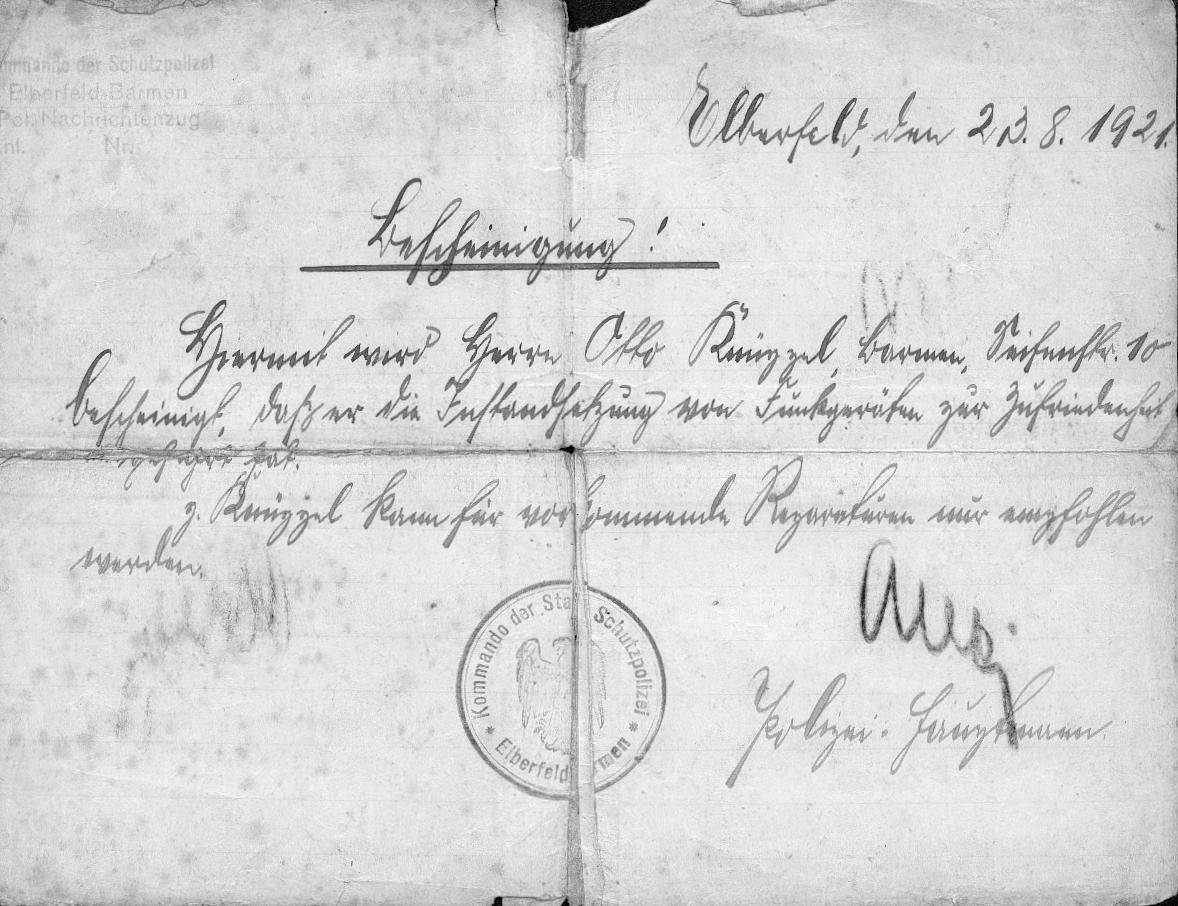 Kommando der Schutzpolizei
Elberfeld-Barmen
Pol. Nachrichtenzug
Nr.
Elberfeld, den 23.8.1921.
Bescheinigung!
Hiermit wird Herrn Otto Knüppel, Barmen, Seifenstr. 10
bescheinigt, daß er die Instandsetzung von Funkgeräten zur Zufriedenheit
hat.
Knüppel kann für vorkommende Reparaturen nur empfohlen
werden.
Kommando der Schutzpolizei
* Elberfeld Barmen *
Polizei-Hauptmann.